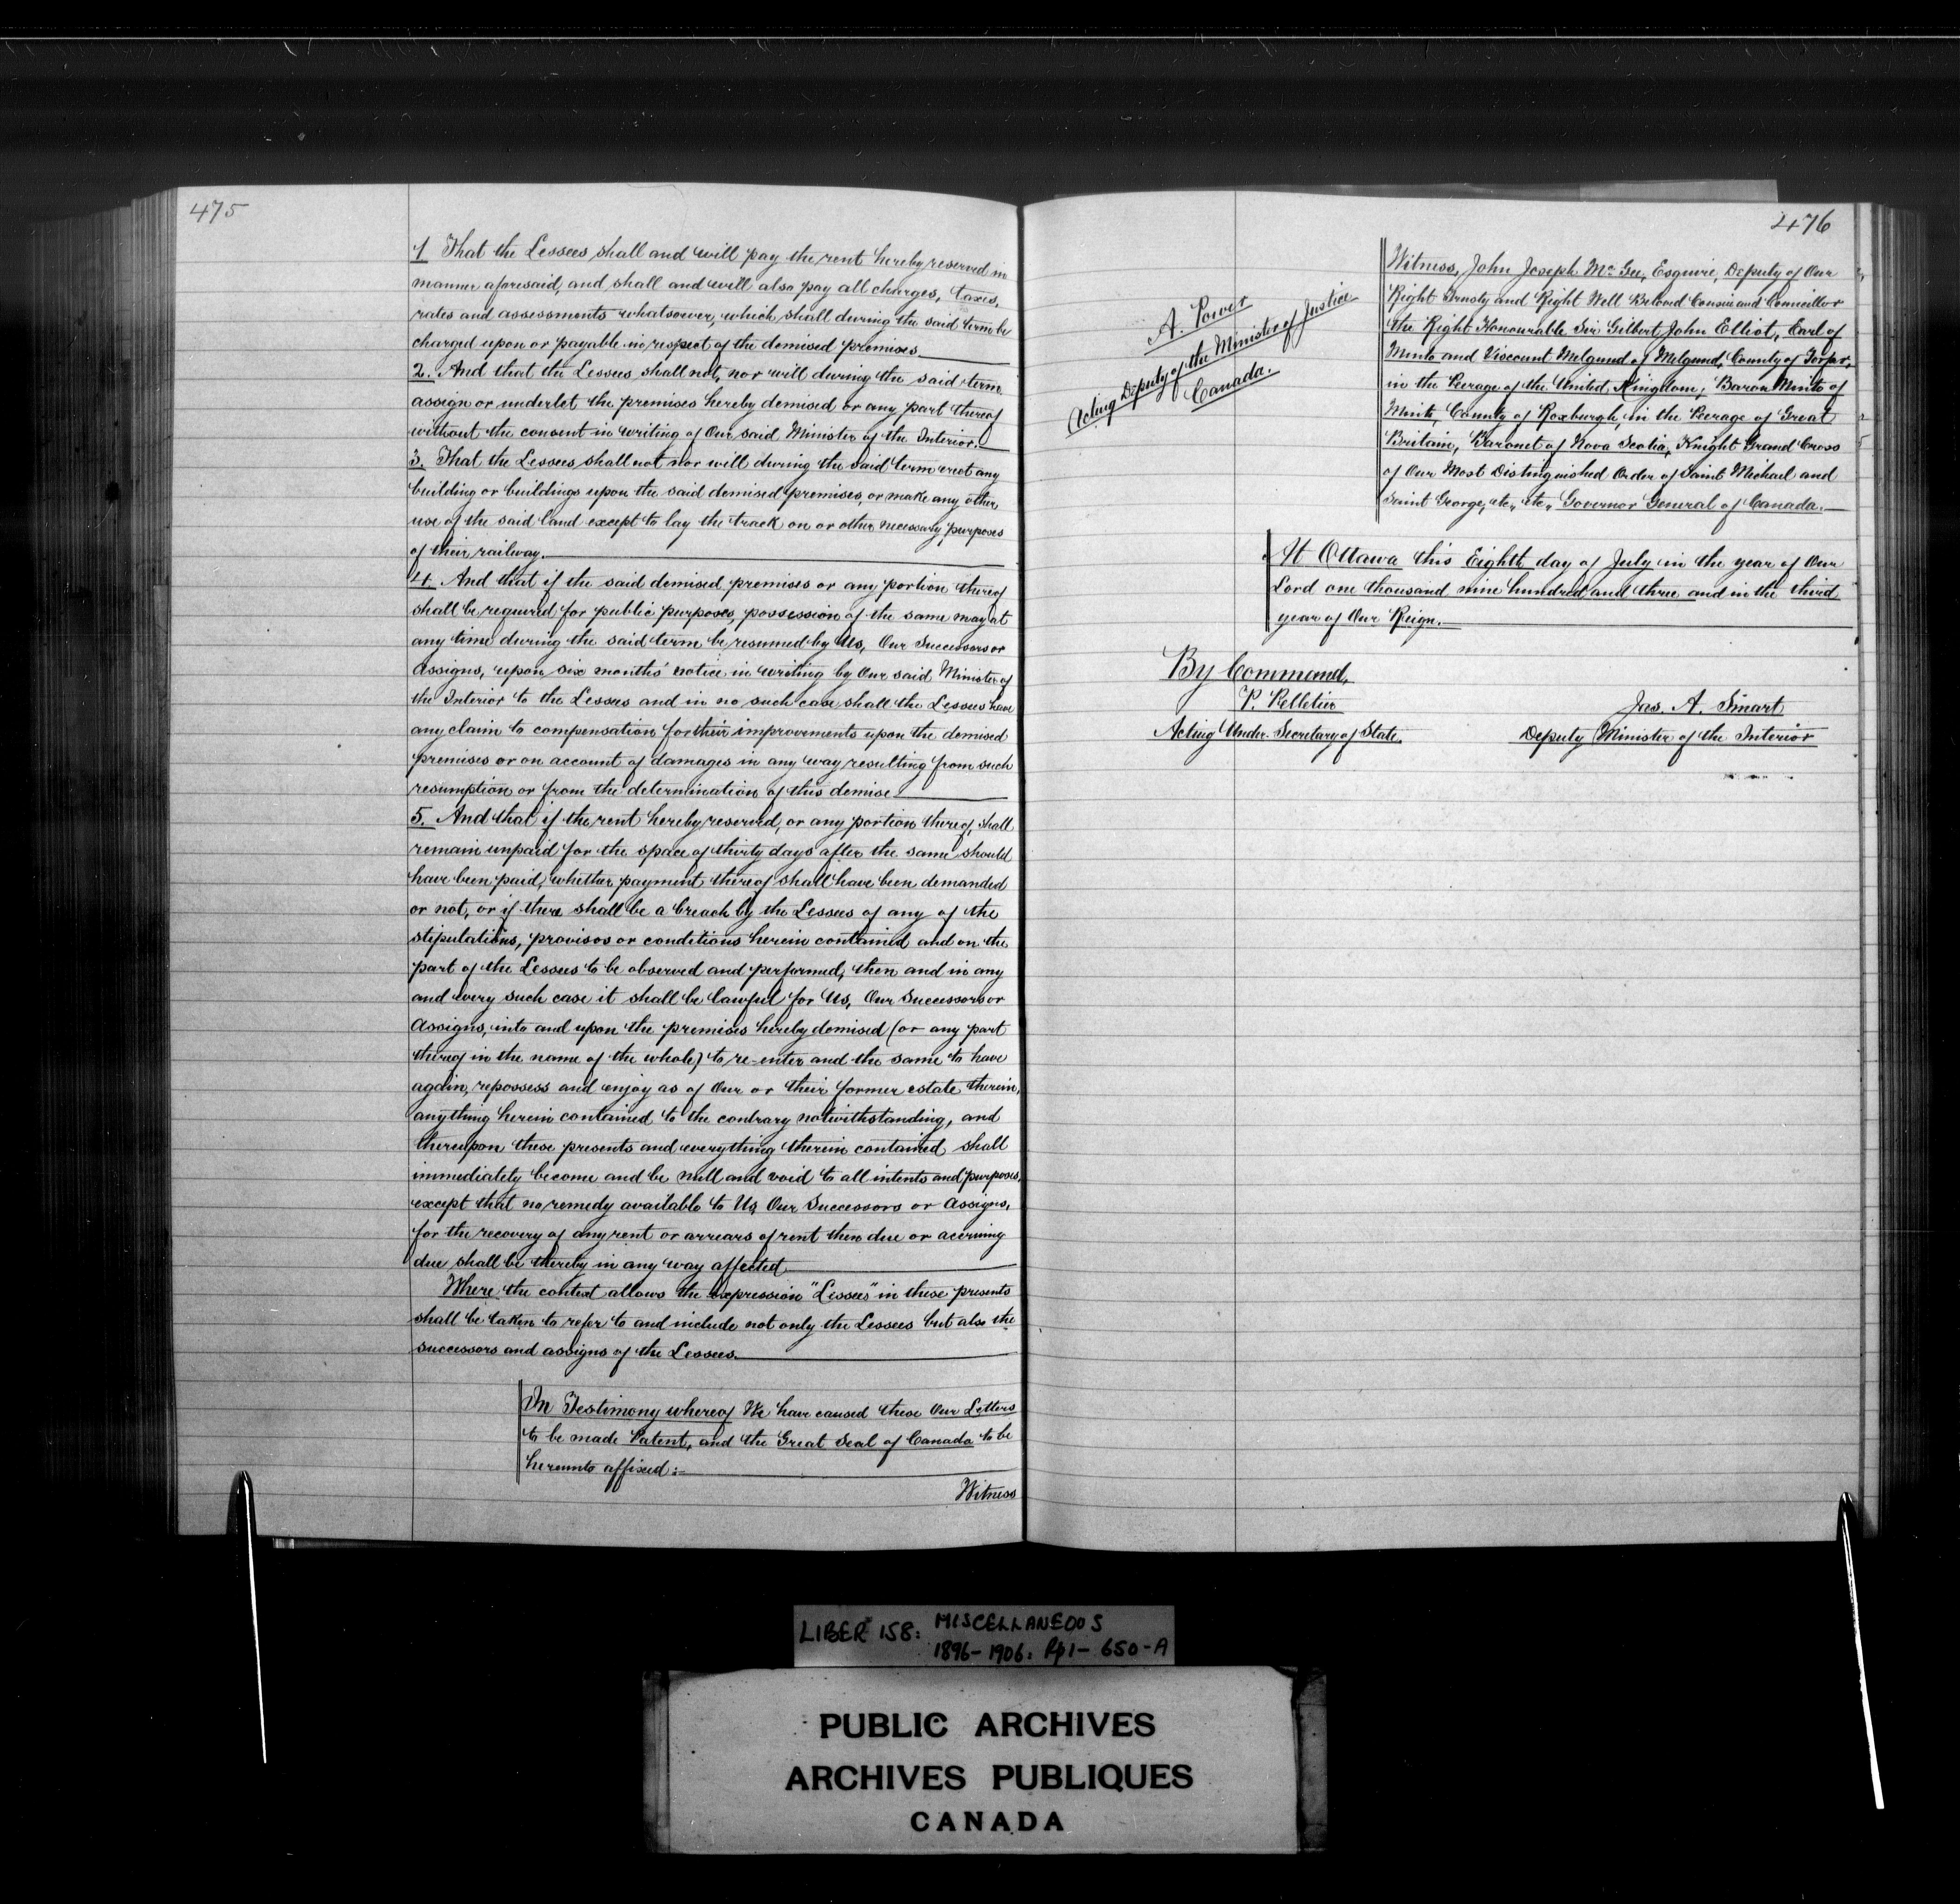 475
1 That the Lessees shall and will pay the rent hereby reserved in
manner aforesaid, and shall and will also pay all charges, taxes,
rates and assessments whatsoever, which shall during the said term be
charged upon or payable in respect of the demised premises
2. And that the Lessees shall not, nor will during the said term
assign or underlet the premises hereby demised or any part thereof
without the consent in writing of Our said Minister of the Interior.
3. That the Lessees shall not nor will during the said term erect any
building or buildings upon the said demised premises, or make any other
use of the said land except to lay the track on or other necessary purposes
of their railway.
4. And that if the said demised premises or any portion thereof
shall be required for public purposes, possession of the same may at
any time during the said term be resumed by Us, Our Successors or
Assigns, upon six months' notice in writing by Our said Minister of
the Interior to the Lessees and in no such case shall the Lessees have
any claim to compensation for their improvements upon the demised
premises or on account of damages in any way resulting from such
resumption or from the determination of this demise.
5. And that if the rent hereby reserved, or any portion thereof, shall
remain unpaid for the space of thirty days after the same should
have been paid, whether payment thereof shall have been demanded
or not, or if there shall be a breach by the Lessees of any of the
stipulations, provisos or conditions herein contained and on the
part of the Lessees to be observed and performed, then and in any
and every such case it shall be lawful for Us, Our Successors or
Assigns, into and upon the premises hereby demised (or any part
thereof in the name of the whole) to re-enter and the same to have
again, repossess and enjoy as of Our or their former estate therein,
anything herein contained to the contrary notwithstanding, and
thereupon these presents and everything therein contained shall
immediately become and be null and void to all intents and purposes,
except that no remedy available to Us, Our Successors or Assigns,
for the recovery of any rent or arrears of rent then due or accruing
due shall be thereby in any way affected
Where the context allows the expression "Lessees" in these presents
shall be taken to refer to and include not only the Lessees but also the
successors and assigns of the Lessees.
In Testimony whereof We have caused these Our Letters
to be made Patent, and the Great Seal of Canada to be
hereunto affixed:-
Witness
476
A. Power
Acting Deputy of the Minister of Justice
Canada.
Witness, John Joseph McGee, Esquire, Deputy of Our
Right Trusty and Right Well Beloved Cousin and Councillor
the Right Honourable Sir Gilbert John Elliot, Earl of
Minto and Viscount Melgund of Melgund, County of Forfar,
in the Peerage of the United Kingdom, Baron Minto of
Minto, County of Roxburgh, in the Peerage of Great
Britain, Baronet of Nova Scotia, Knight Grand Cross
of Our Most Distinguished Order of Saint Michael and
Saint George, etc., etc., Governor General of Canada.
At Ottawa this Eighth day of July in the year of Our
Lord one thousand nine hundred and three and in the third
year of Our Reign.
By Command,
P. Pelletier
Acting Under-Secretary of State.
Jas. A. Smart
Deputy Minister of the Interior
LIBER 158: MISCELLANEOUS
1896-1906: Pp1-650-A
PUBLIC ARCHIVES
ARCHIVES PUBLIQUES
CANADA